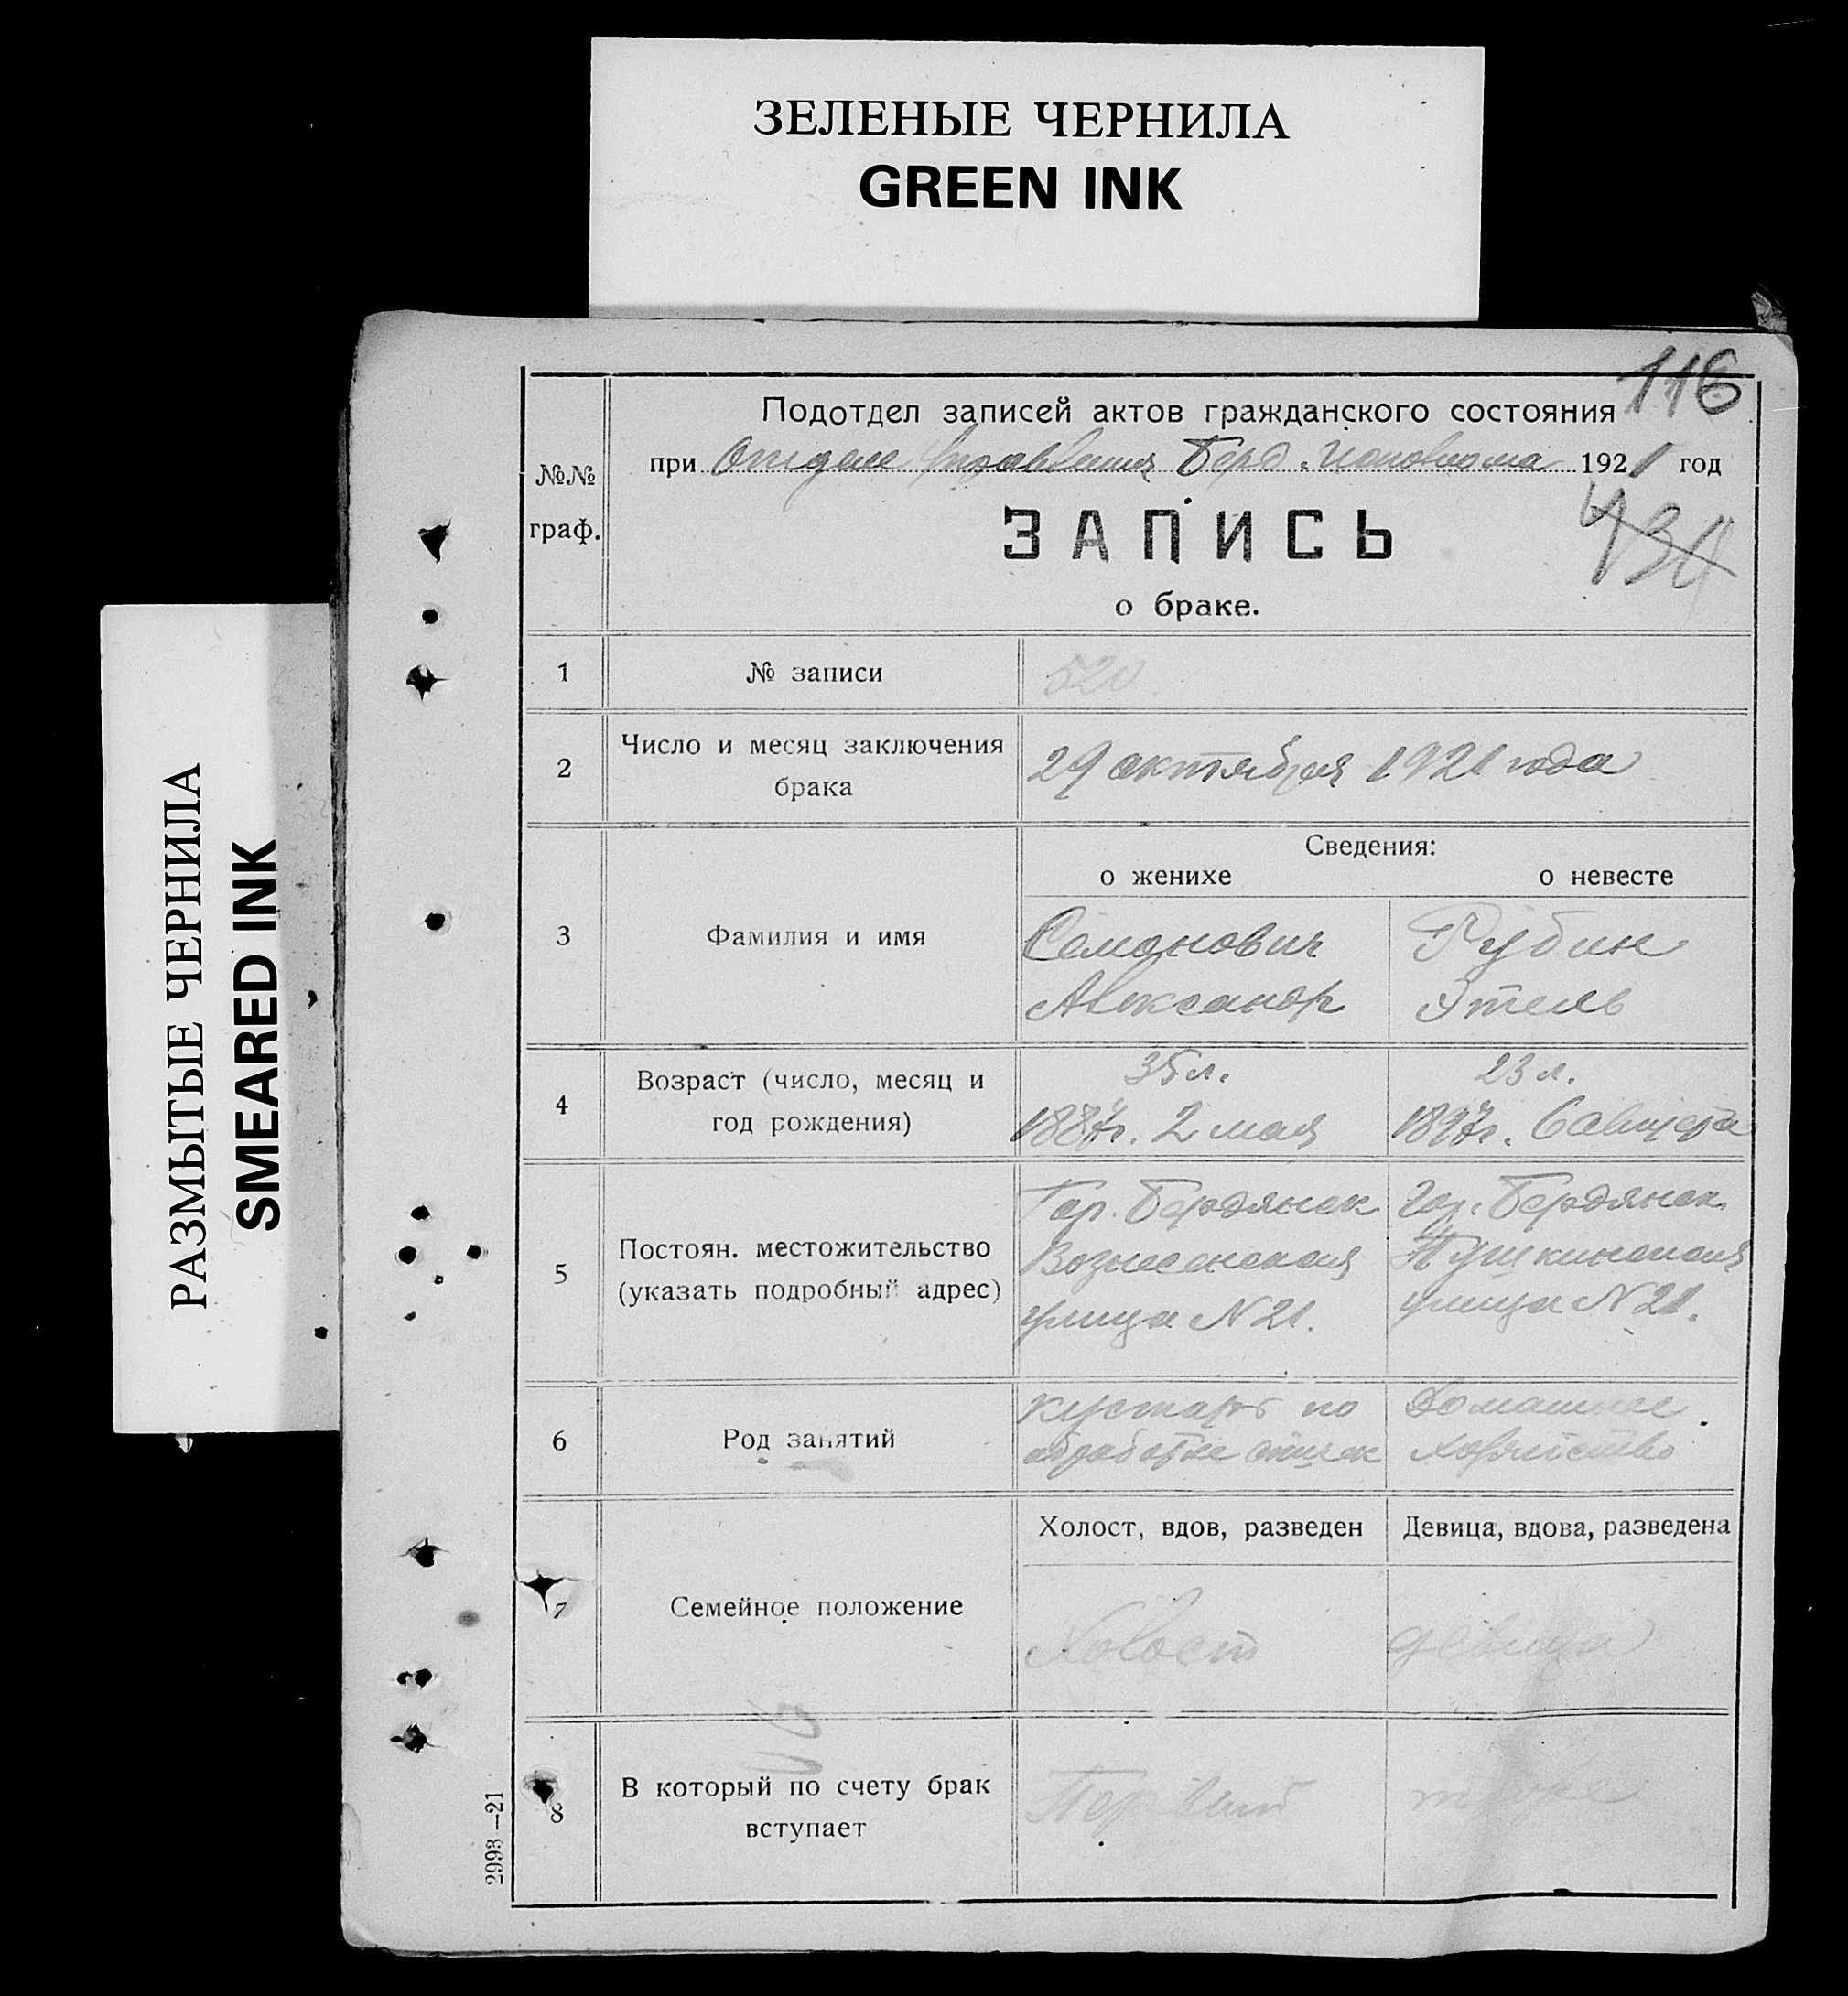 ЗЕЛЕНЫЕ ЧЕРНИЛА
GREEN INK
РАЗМЫТЫЕ ЧЕРНИЛА
SMEARED INK
116
Подотдел записей актов гражданского состояния
при Отделе Управления Берд. Исполкома 1921 год
№№
граф.
ЗАПИСЬ
о браке.
1
№ записи
520
2
Число и месяц заключения
брака
29 октября 1921 года
Сведения:
о женихе
о невесте
3
Фамилия и имя
Семонович
Александр
Рубин
Этель
4
Возраст (число, месяц и
год рождения)
35 л.
1887г. 2 мая
23 л.
1897г. 6 августа
5
Постоян. местожительство
(указать подробный адрес)
Гор. Бердянск
Вознесенская
улица N 21.
Гор. Бердянск
Пушкинская
улица N 21.
6
Род занятий
кустарь по
обработке
Домашнее
хозяйство
7
Семейное положение
Холост, вдов, разведен
Девица, вдова, разведена
Холост
девица
8
В который по счету брак
вступает
Первый
тоже
2993—21